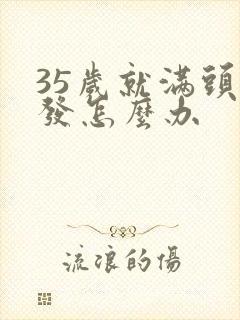 35歲就滿頭
發怎麼办
流浪的傷